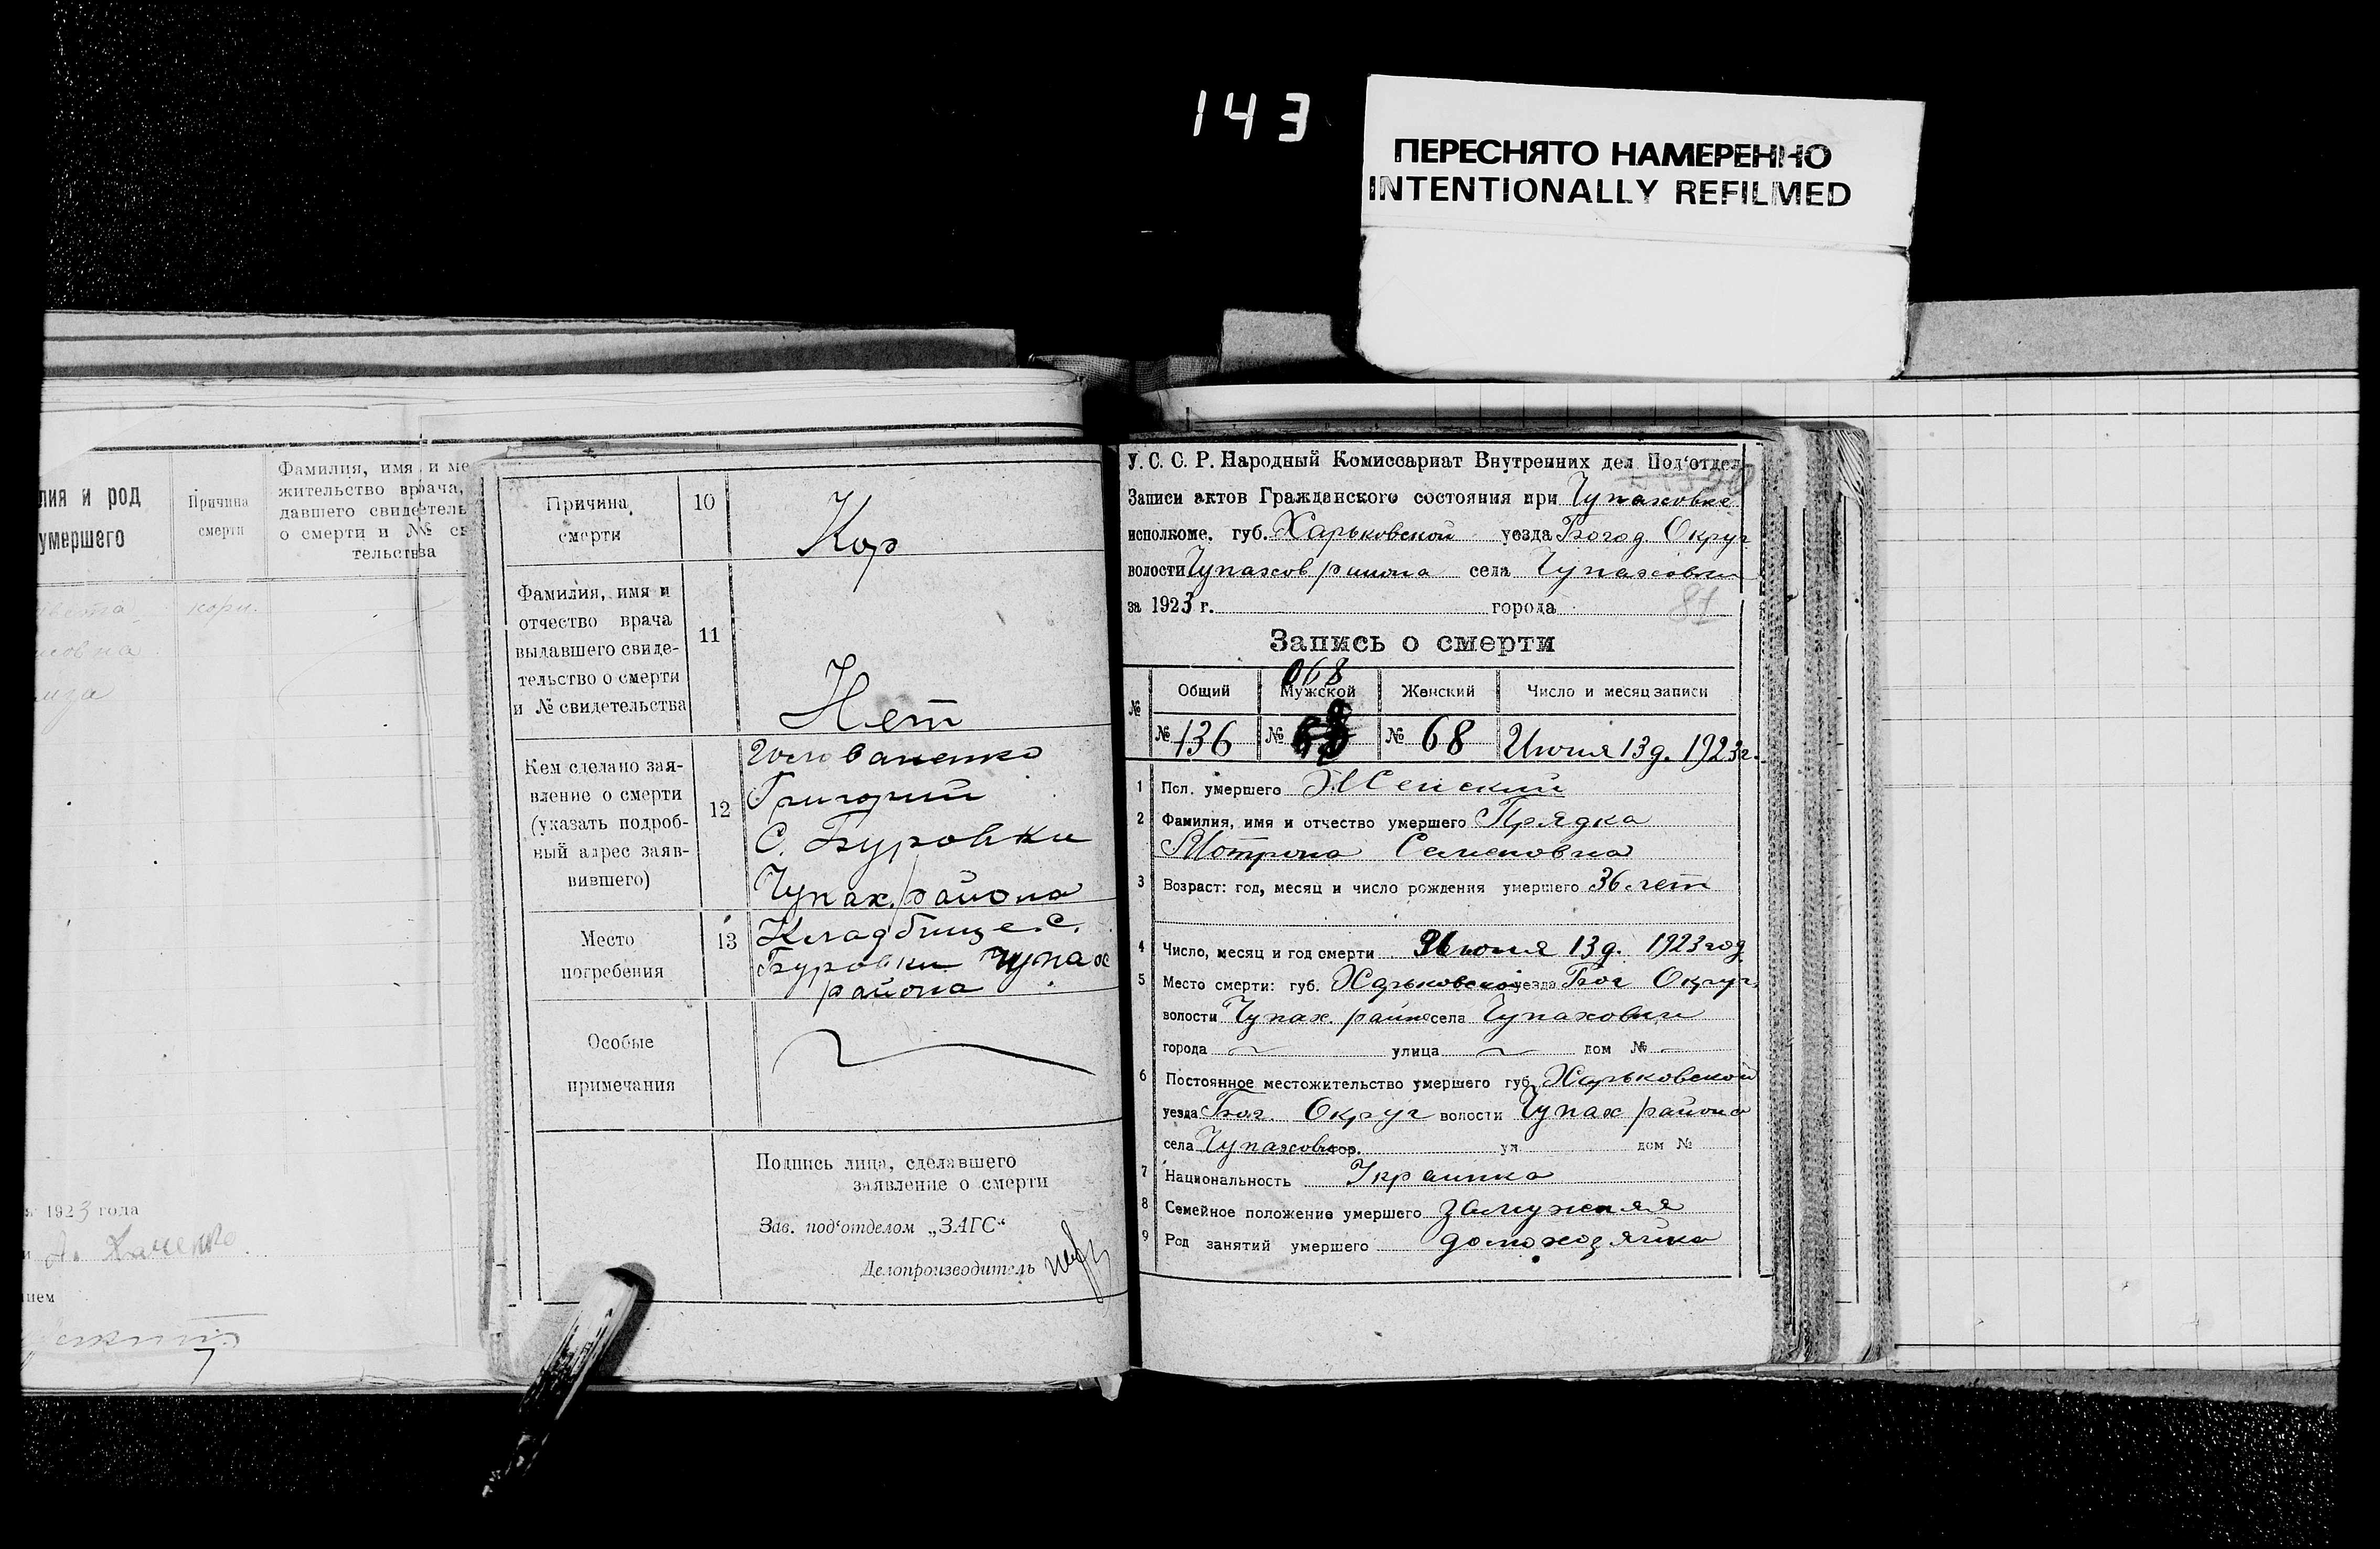 143
ПЕРЕСНЯТО НАМЕРЕННО
INTENTIONALLY REFILMED
лия и род
умершего
Причина
смерти
Фамилия, имя и ме
жительство врача,
давшего свидетель
о смерти и № св
тельства
кори.
1923 года
Причина
смерти
10
Кор
Фамилия, имя и
отчество врача
выдавшего свиде-
тельство о смерти
и № свидетельства
11
Нет
Кем сделано зая-
вление о смерти
(указать подроб-
ный адрес заяв-
вившего)
12
Голованенко
Григорий
С. Буровки
Чупах. района
Место
погребения
13
Кладбище С.
Буровки Чупах
района
Особые
примечания
Подпись лица, сделавшего
заявление о смерти
Зав. под'отделом „ЗАГС"
Делопроизводитель
У. С. С. Р. Народный Комиссариат Внутренних дел Под'отдел
Записи актов Гражданского состояния при Чупаховке
исполкоме. губ. Харьковской уезда Богод. Округ
волости Чупахов района села Чупаховки
за 1923 г. города
81
Запись о смерти
068
№ Общий Мужской Женский Число и месяц записи
№ 136 № 68 № 68 Июня 13 д. 1923 г.
1 Пол. умершего Женский
2 Фамилия, имя и отчество умершего Прядка
Мотрона Семеновна
3 Возраст: год, месяц и число рождения умершего 36 лет
4 Число, месяц и год смерти Июня 13 д. 1923 год
5 Место смерти: губ. Харьковской уезда Бог Округ.
волости Чупах. района села Чупаховки
города улица дом №
6 Постоянное местожительство умершего губ. Харьковской
уезда Бог. Округ волости Чупах района
села Чупаховки гор. ул дом №
7 Национальность Украинка
8 Семейное положение умершего замужняя
9 Род занятий умершего домохозяйка